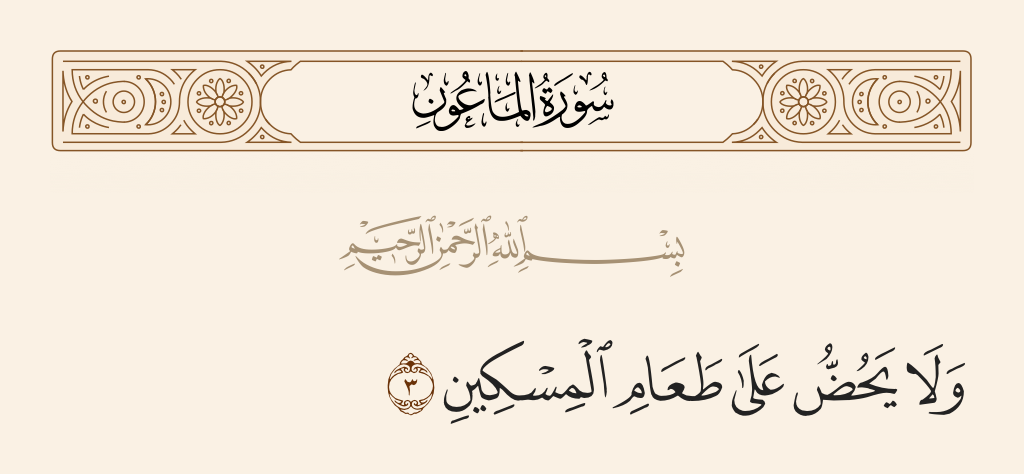 سُورَةُ المَاعُونِ
بِسْمِ ٱللَّهِ ٱلرَّحْمَٰنِ ٱلرَّحِيمِ
وَلَا يَحُضُّ عَلَىٰ طَعَامِ ٱلْمِسْكِينِ ٣